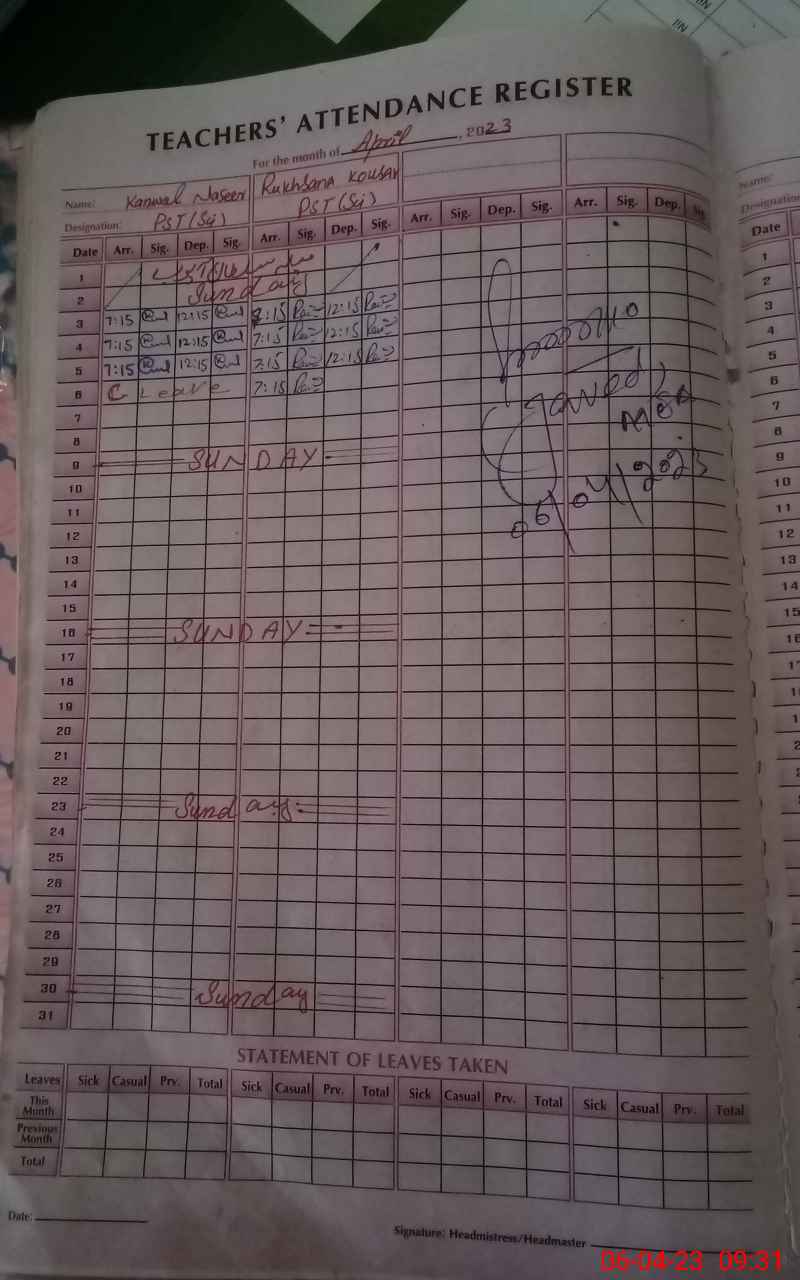 TEACHERS' ATTENDANCE REGISTER
For the month of April, 2023
Name: Kanwal Naseer Rukhsana Kousar
Designation: PST (Sci) PST (Sci)
Date Arr. Sig. Dep. Sig. Arr. Sig. Dep. Sig. Arr. Sig. Dep. Sig. Arr. Sig. Dep. Sig.
1
2 Sunday
3 7:15 12:15 7:15 12:15
4 7:15 12:15 7:15 12:15
5 7:15 12:15 7:15 12:15
6 C Leave 7:15
7
8
9 SUNDAY
10
11
12
13
14
15
16 SUNDAY
17
18
19
20
21
22
23 Sunday
24
25
26
27
28
29
30 Sunday
31
Javed
MEA
06/04/2023
STATEMENT OF LEAVES TAKEN
Leaves Sick Casual Prv. Total Sick Casual Prv. Total Sick Casual Prv. Total Sick Casual Prv. Total
This Month
Previous Month
Total
Date:
Signature: Headmistress/Headmaster
06-04-23 09:31
Name:
Designation
Date
1
2
3
4
5
6
7
8
9
10
11
12
13
14
15